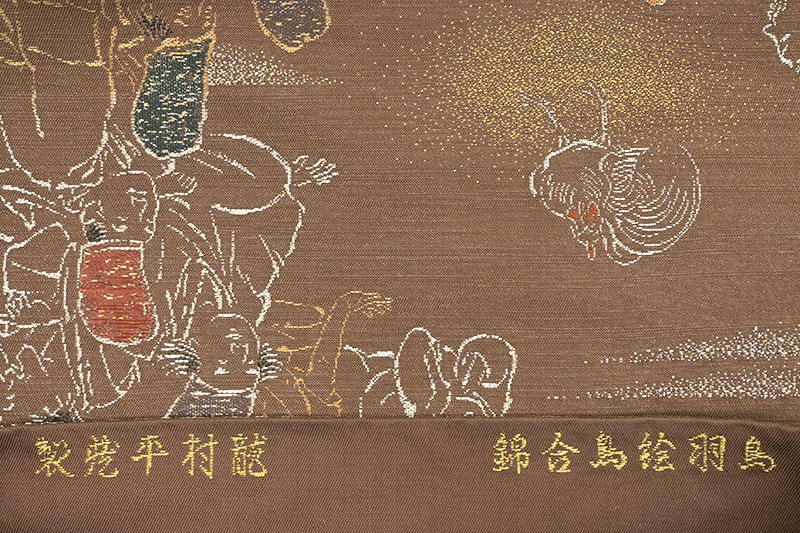 鳥羽絵鳥合錦
龍村平蔵製